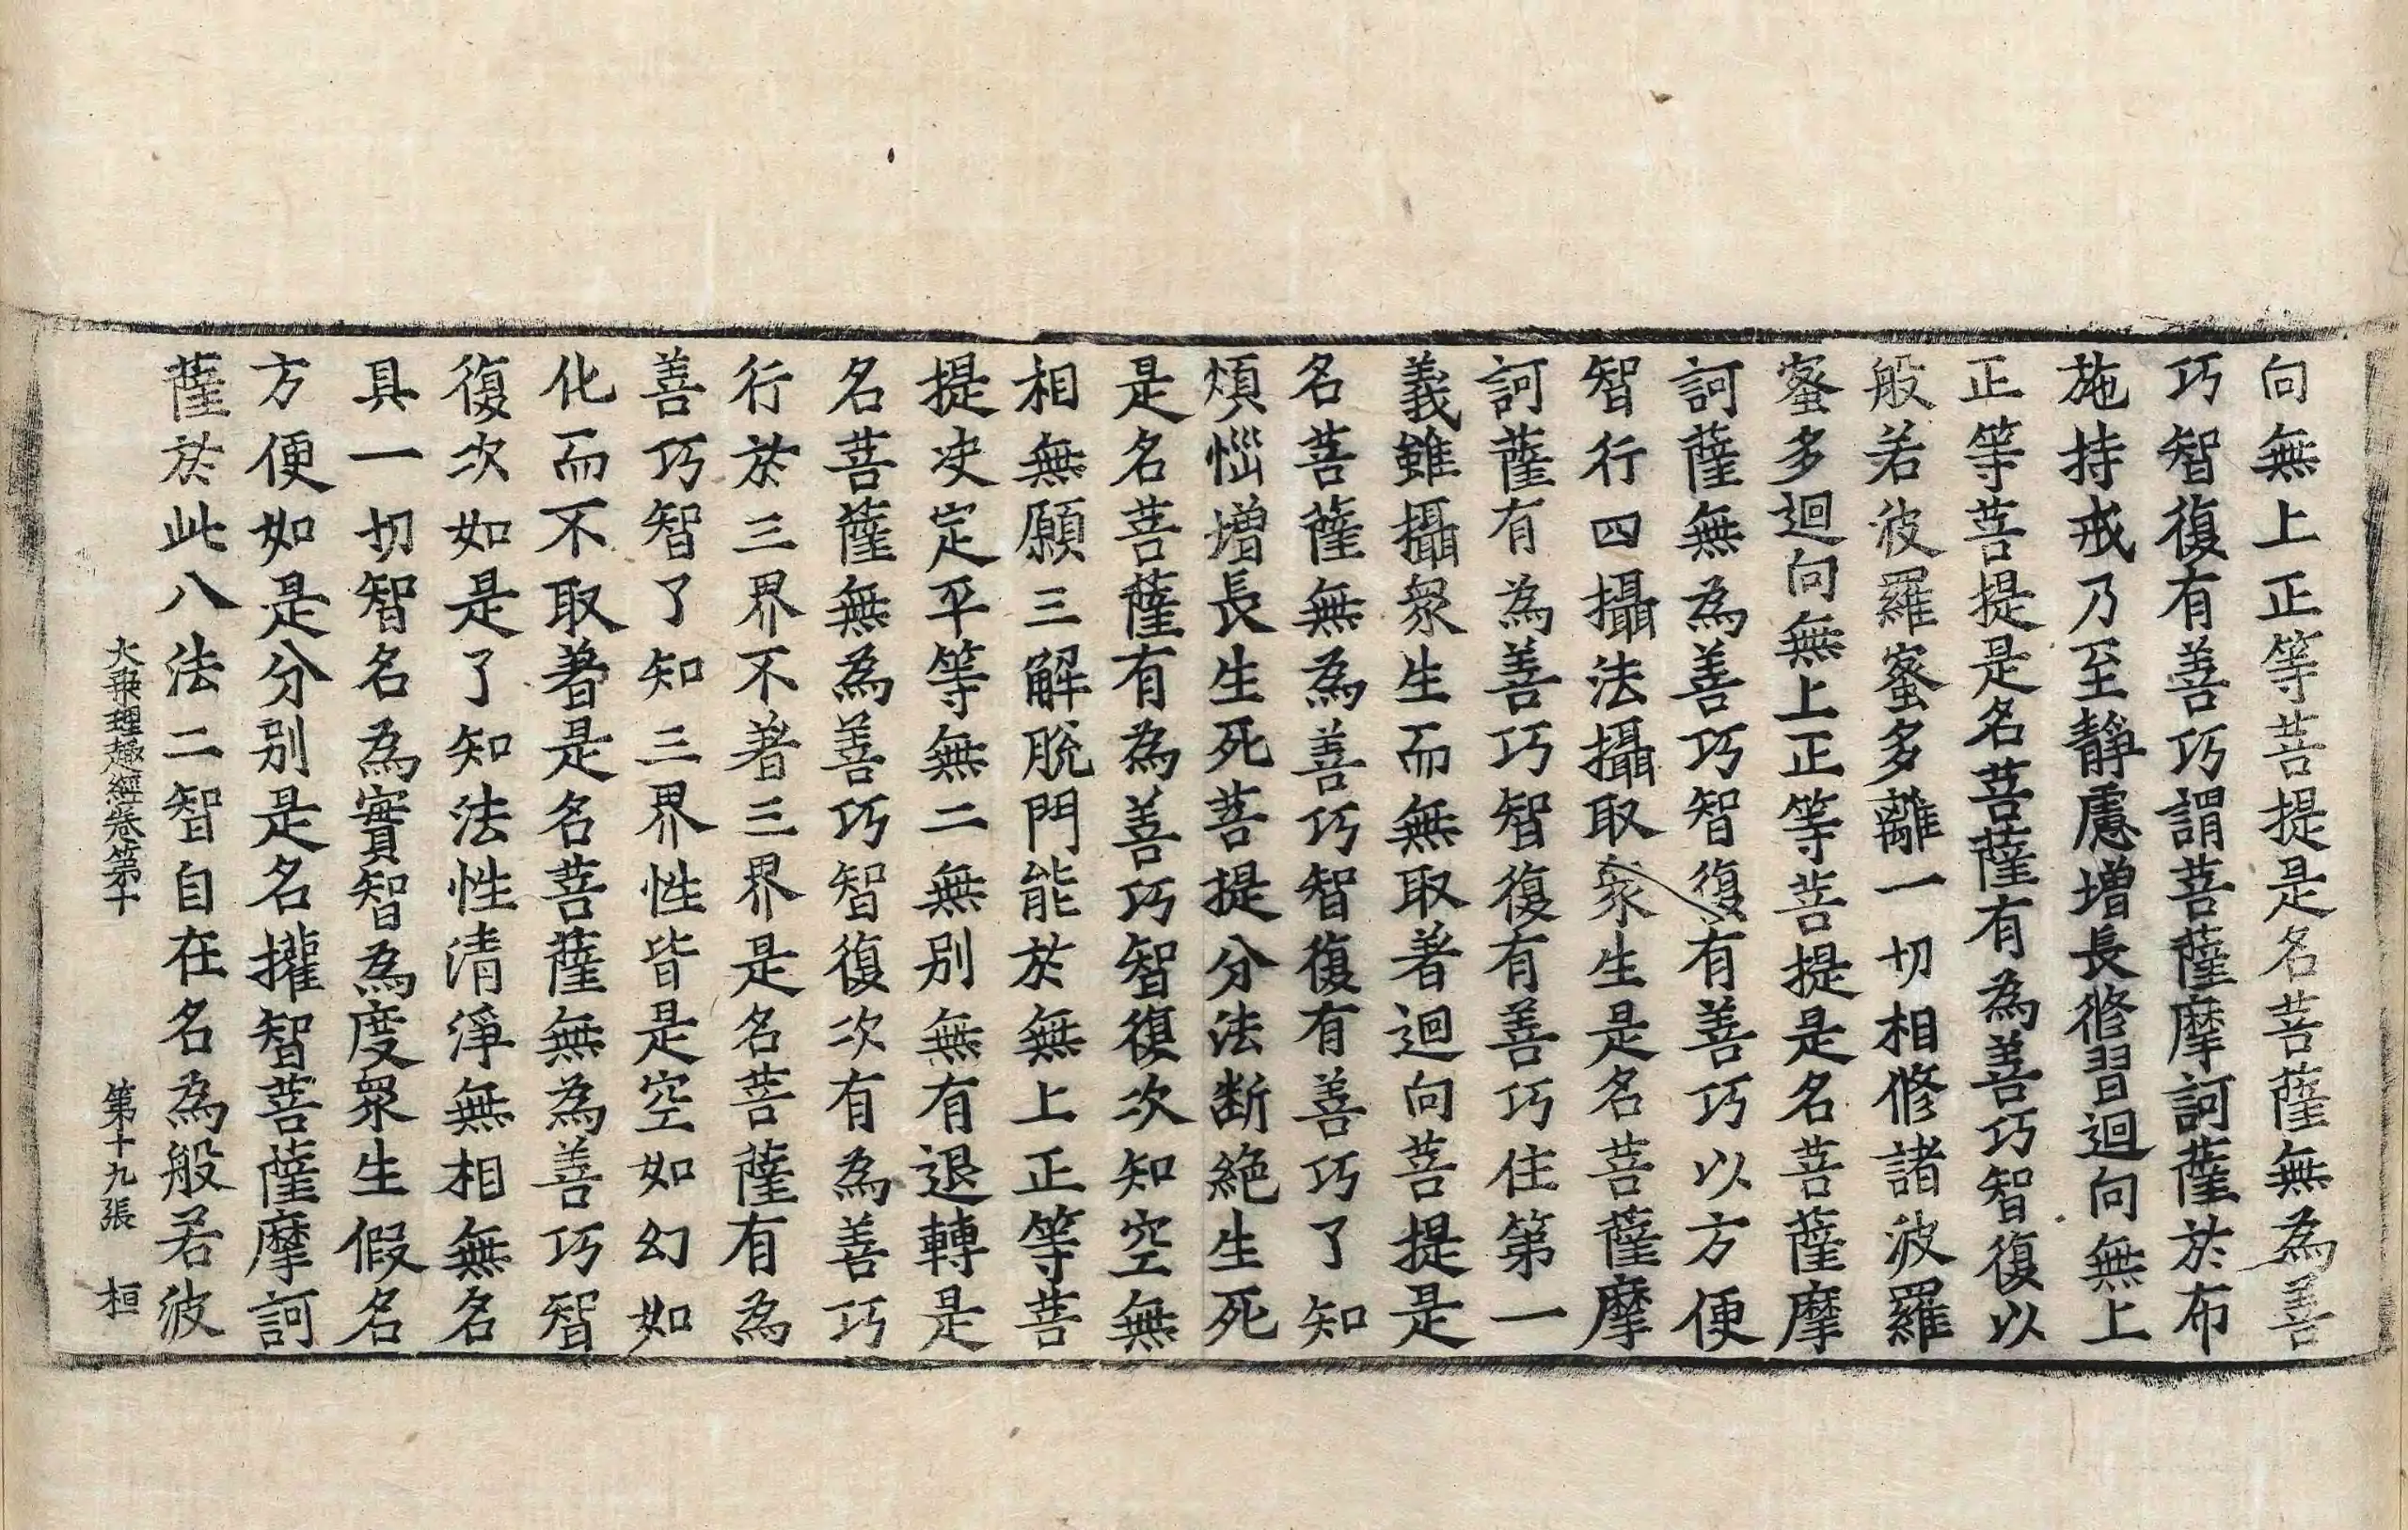 向無上正等菩提是名菩薩無為善
巧智復有善巧謂菩薩摩訶薩於布
施持戒乃至靜慮增長修習迴向無上
正等菩提是名菩薩有為善巧智復以
般若波羅蜜多離一切相修諸波羅
蜜多迴向無上正等菩提是名菩薩摩
訶薩無為善巧智復有善巧以方便
智行四攝法攝取眾生是名菩薩摩
訶薩有為善巧智復有善巧住第一
義雖攝眾生而無取著迴向菩提是
名菩薩無為善巧智復有善巧了知
煩惱增長生死菩提分法断絕生死
是名菩薩有為善巧智復次知空無
相無願三解脫門能於無上正等菩
提决定平等無二無別無有退轉是
名菩薩無為善巧智復次有為善巧
行於三界不著三界是名菩薩有為
善巧智了知三界性皆是空如幻如
化而不取著是名菩薩無為善巧智
復次如是了知法性清淨無相無名
具一切智名為實智為度眾生假名
方便如是分別是名權智菩薩摩訶
薩於此八法二智自在名為般若波
大乗理趣經卷第十 第十九張 桓